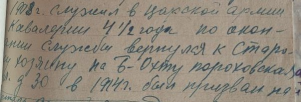 1908г. служил в царской армии
Кавалерии 4½ года по окон-
чии службы вернулся к старо-
му хозяину на Б-Охту пороховская
д 30 в 1914г. был призван на